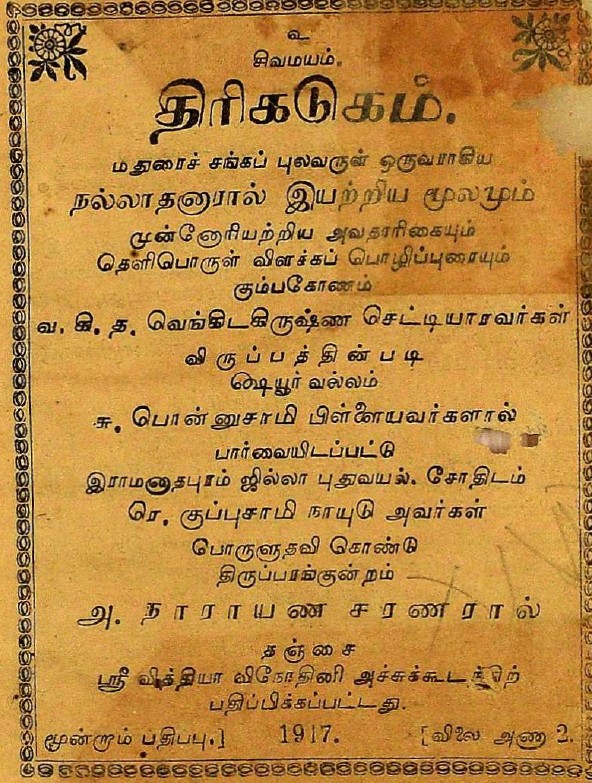 உ
சிவமயம்.
திரிகடுகம்.
மதுரைச் சங்கப் புலவருள் ஒருவராகிய
நல்லாதனாரால் இயற்றிய மூலமும்
முன்னோரியற்றிய அவதாரிகையும்
தெளிபொருள் விளக்கப் பொழிப்புரையும்
கும்பகோணம்
வ. கி. த. வெங்கிடகிருஷ்ண செட்டியாரவர்கள்
விருப்பத்தின்படி
ஷையூர் வல்லம்
சு. பொன்னுசாமி பிள்ளையவர்களால்
பார்வையிடப்பட்டு
இராமனாதபுரம் ஜில்லா புதுவயல். சோதிடம்
ரெ. குப்புசாமி நாயுடு அவர்கள்
பொருளுதவி கொண்டு
திருப்பரங்குன்றம்
அ. நாராயண சரணரால்
தஞ்சை
ஸ்ரீ வித்தியா விநோதினி அச்சுக்கூடத்திற்
பதிப்பிக்கப்பட்டது.
மூன்றாம் பதிபபு.] 1917. [விலை அணா 2.